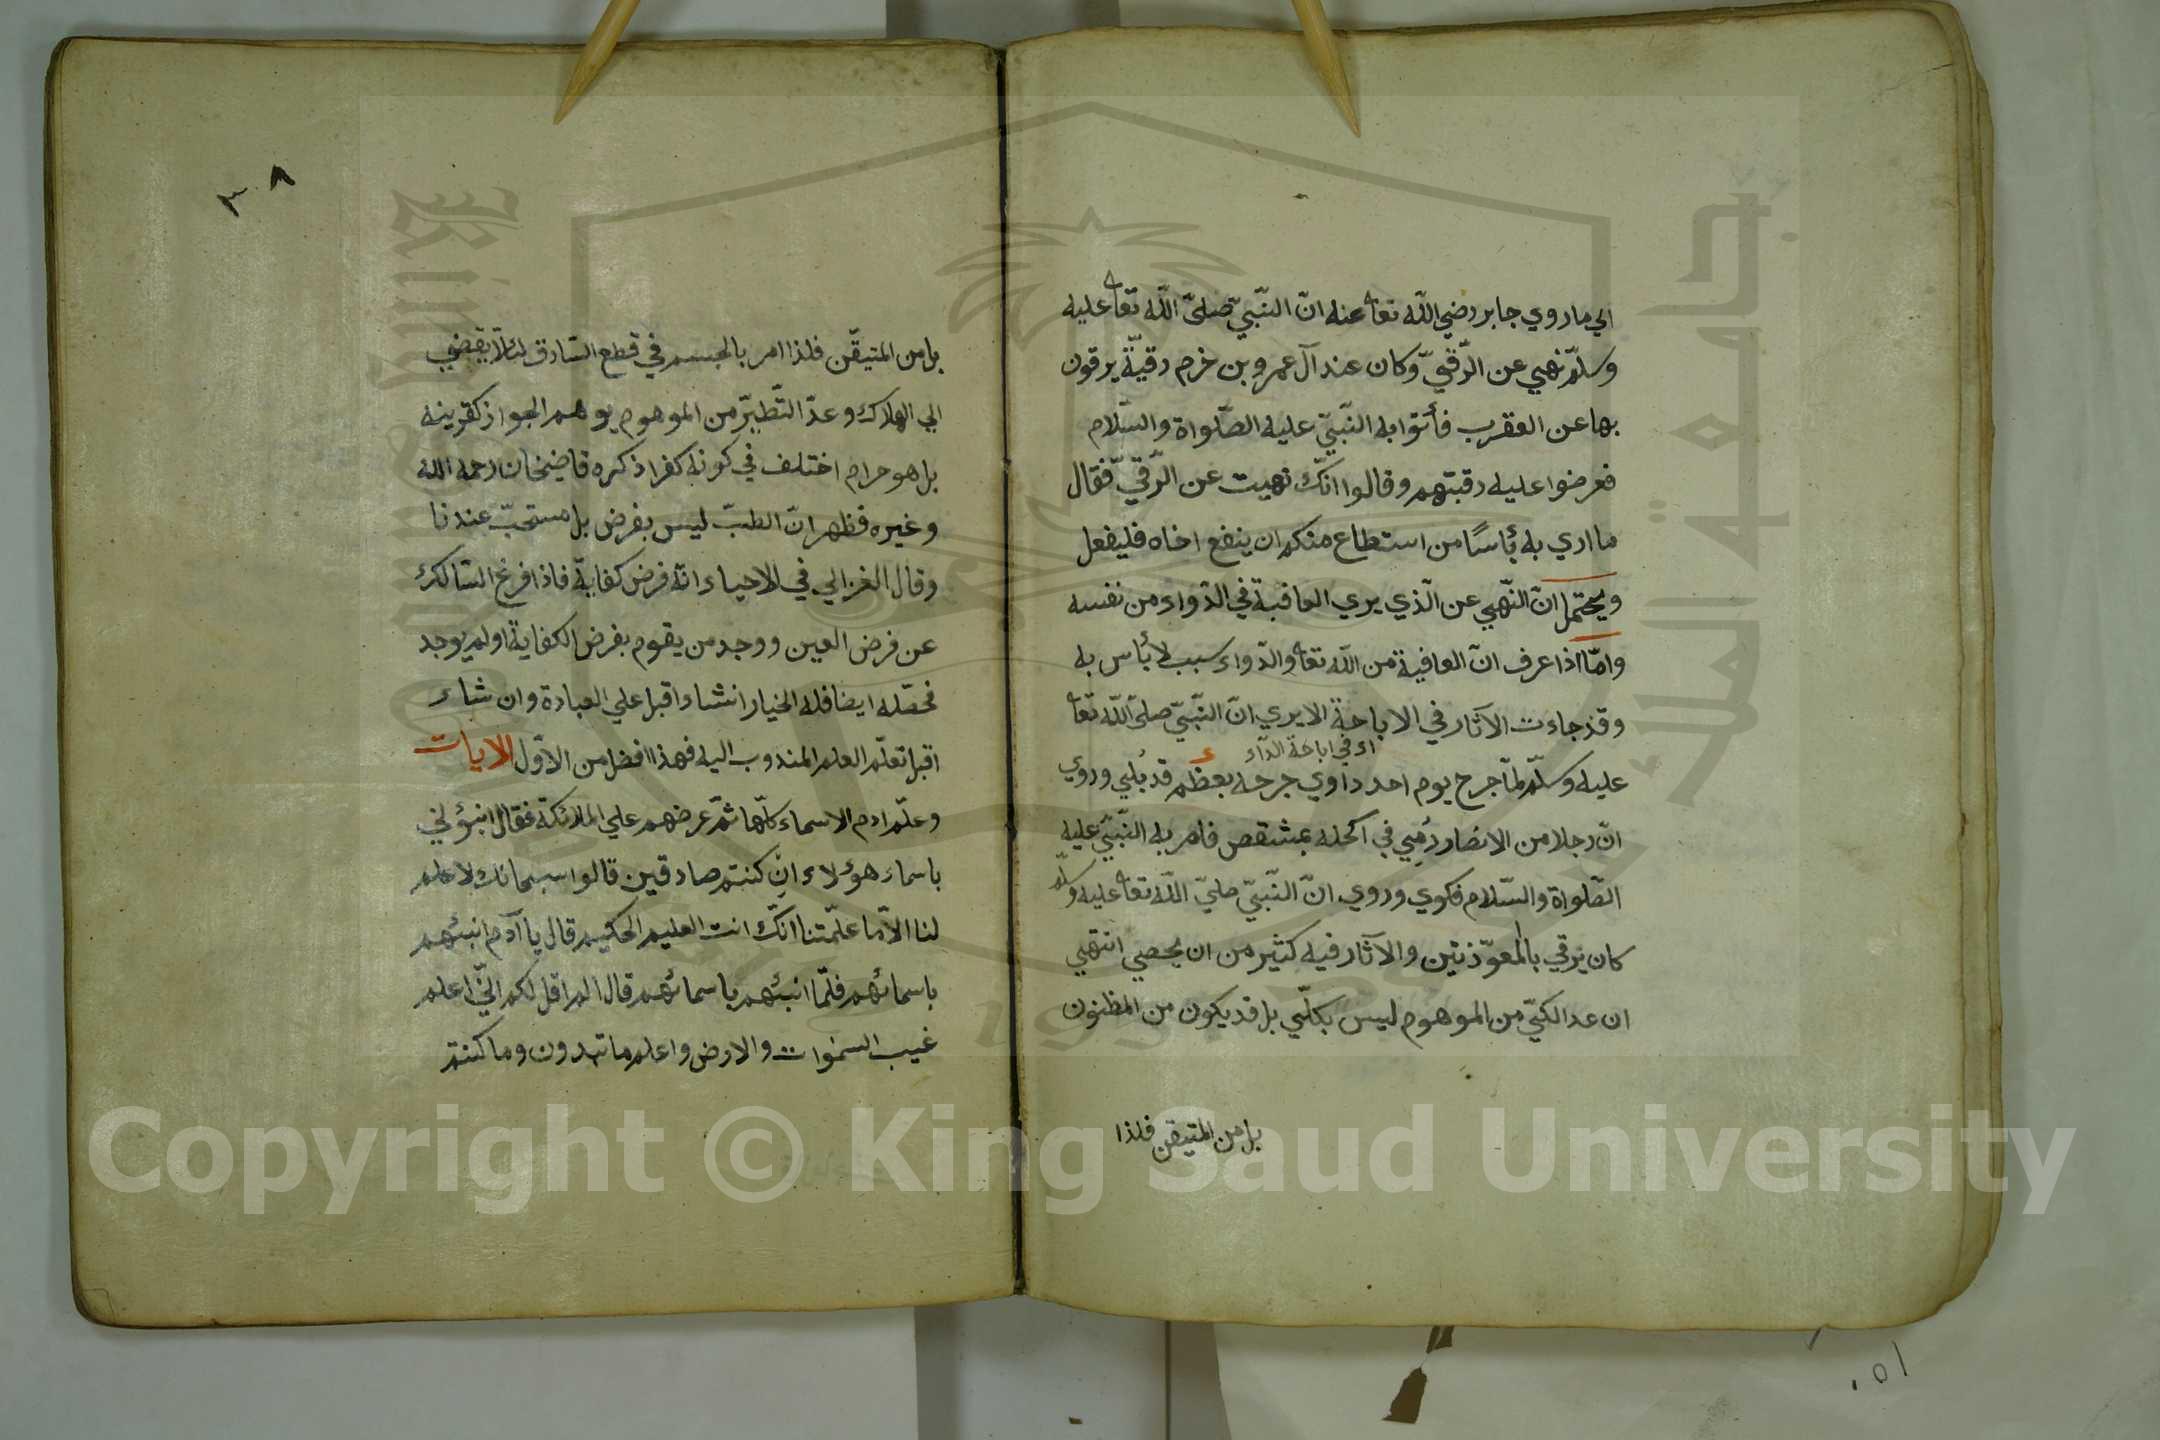 الي ما روي جابر رضي اللّه تعا عنه انّ النّبيّ صلّى اللّه تعا عليه
وسلّم نهي عن الرّقيّ وكان عند آل عمرو بن خرم رقيّة يرقون
بها عن العقرب فأتوا به النّبيّ عليه الصّلواة والسّلام
فعرضوا عليه رقيتهم وقالوا انّك نهيت عن الرّقيّ فقال
ما اري به بأسًا من استطاع منكم ان ينفع اخاه فليفعل
ويحتمل انّ النّهي عن الّذي يري العافية في الدّواء من نفسه
وامّا اذا عرف انّ العافية من اللّه تعا والدّواء سبب لا بأس به
وقد جاءت الآثار في الاباحة الا يري انّ النّبيّ صلّى اللّه تعا
اء في اباحة الدّاء
عليه وسلّم لمّا جرح يوم احد داوي جرحه بعظم قد بُلي وروي
انّ رجلا من الانصار رُمِي في اكحله بمشقص فامر به النّبيّ عليه
الصّلواة والسّلام فكوي وروي انّ النّبيّ صليّ اللّه تعا عليه وسلّم
كان يرقي بالمعوّذتين والآثار فيه كثير من ان يحصي انتهي
ان عد الكيّ من الموهوم ليس بكلّي بل قد يكون من المظنون
بل من المتيقن فلذا
٣٠٨
بل من المتيقّن فلذا امر بالحسم في قطع السّارق لئلا يفضي
الي الهلاك وعدّ التّطيرّ من الموهوم يوهم الجواز كقرينه
بل هو حرام اختلف في كونه كفرا ذكره قاضيخان رحمه اللّه
وغيره فظهر انّ الطبّ ليس بفرض بل مستحبّ عندنا
وقال الغزالي في الاحياء انّه فرض كفاية فاذا فرغ السّالك
عن فرض العين ووجد من يقوم بفرض الكفاية او لم يوجد
فحصّله ايضا فله الخيار انشاء اقبل علي العبادة وان شاء
اقبل تعلّم العلم المندوب اليه فهذا افضل من الاوّل الايات
وعلّم ادم الاسماء كلّها ثمّ عرضهم علي الملائكة فقال انبؤني
باسماء هؤلاء ان كنتم صادقين قالوا سبحانك لا علم
لنا الاّ ما علّمتنا انّك انت العليم الحكيم قال يا آدم انبئهم
باسمائهم فلمّا انبئهم باسمائهم قال الم اقل لكم انّي اعلم
غيب السموات والارض واعلم ما تبدون وما كنتم
Copyright © King Saud University